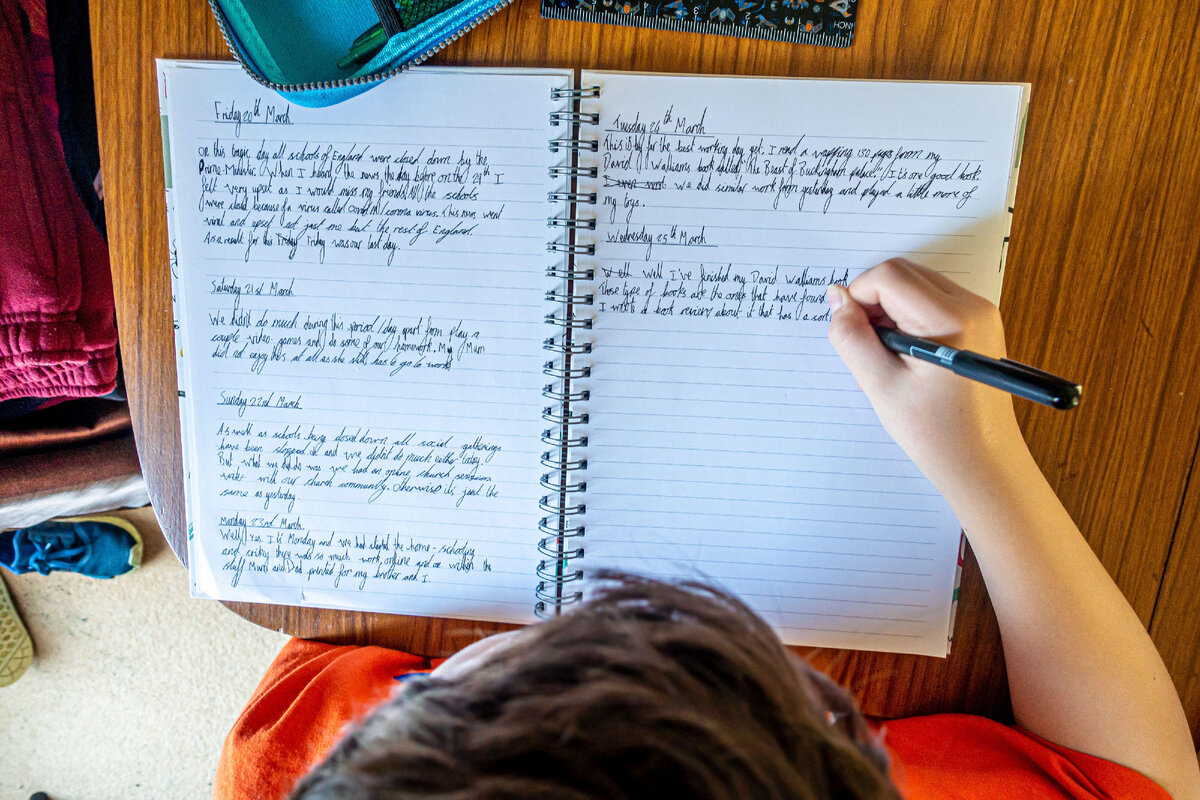 Friday 20th March
On this tragic day all schools of England were closed down by the
Prime-Minister. When I heard the news the day before on the I
felt very upset as I would miss my friends. All the schools
were closed because of a virus called corona virus. This news went
viral and upset not just me but the rest of England.
As a result for this Friday Friday was our last day.
Saturday 21st March
We didn't do much during this period/day apart from play a
couple video games and do some of our homework. My Mum
did not enjoy this at all as she still has to go to work
Sunday 22nd March
As well as schools being closed down all social gatherings
have been stopped and we didn't do much either today.
But what my did do was we had an online church
with our church community. Otherwise it's just the
same as yesterday.
Monday 23rd March
Well, yes. It is Monday and we had started the home-schooling
and crikey there was so much work online and on within the
stuff Mum and Dad printed for my brother and I.
Tuesday 24th March
This is by far the best working day yet. I read a wapping 150 pages from my
David Walliams book called "The Beast of Buckingham palace". It is one good book.
we did similar work from yesterday and played a little more of
my toys.
Wednesday 25th March
Well Well I've finished my David Walliams book
Those type of books are the ones that have found
I wrote a book review about it that has a sort
INCH